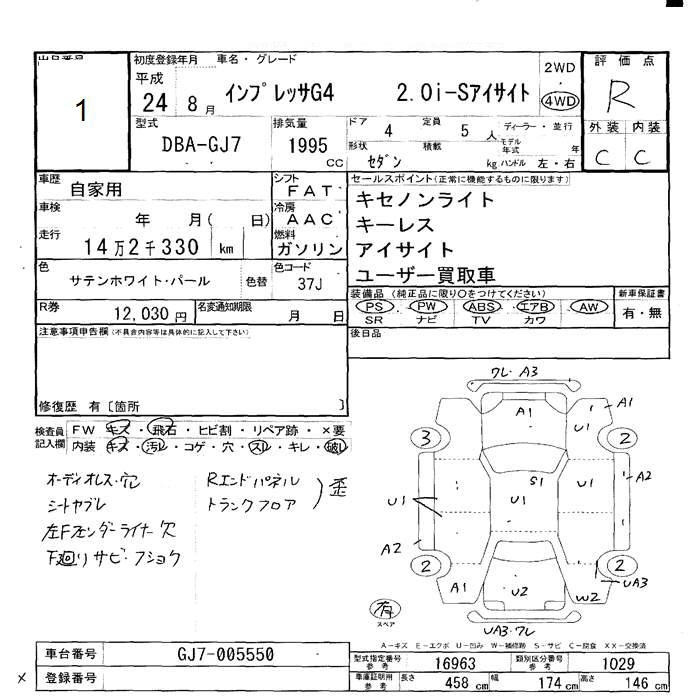 出品番号
1
初度登録年月 車名・グレード
平成
24 8月
インプレッサG4 2.0i-Sアイサイト
2WD
4WD
評価点
R
外装 内装
C C
型式
DBA-GJ7
排気量
1995
CC
ドア 4 定員 5 人 ディーラー・並行
形状 積載 モデル年式 年
セダン kg ハンドル 左・右
車歴
自家用
シフト
FAT
車検
年 月( 日)
冷房
AAC
走行
14万2千330 km
燃料
ガソリン
色
サテンホワイト・パール 色替
色コード
37J
R券
12,030円
名変通知期限
月 日
セールスポイント(正常に機能するものに限ります)
キセノンライト
キーレス
アイサイト
ユーザー買取車
装備品(純正品に限り○をつけてください)
PS・PW・ABS・エアB・AW
SR ナビ TV カワ
新車保証書
有・無
注意事項申告欄(不具合内容等は具体的に記入して下さい)
後日品
修復歴 有〔箇所 〕
検査員記入欄
FW キズ・飛石・ヒビ割・リペア跡・×要
内装 キズ・汚レ・コゲ・穴・スレ・キレ・破レ
オーディオレス・穴
シートヤブレ
左Fフェンダーライナー欠
下廻りサビ・フショク
Rエンドパネル
トランクフロア
歪
ワレ・A3
A1
A1
U1
3
2
S1
U1
A2
U1
U1
A2
2
2
A1
U2
W2
UA3
有
スペア
UA3・ワレ
A-キズ E-エクボ U-凹み W-補修跡 S-サビ C-腐食 XX-交換済
車台番号 GJ7-005550
登録番号
×
型式指定番号 参考 16963 類別区分番号 参考 1029
車庫証明用 参考 長さ 458 cm 幅 174 cm 高さ 146 cm